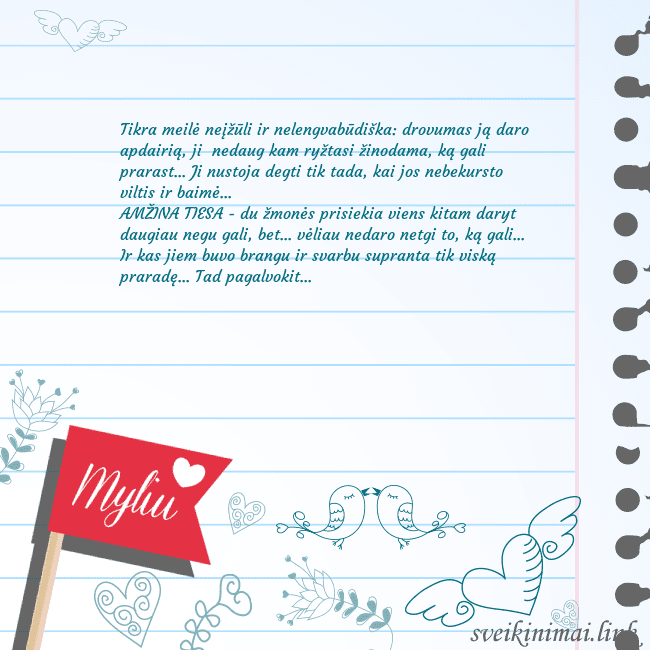 Tikra meilė neįžūli ir nelengvabūdiška: drovumas ją daro
apdairią, ji nedaug kam ryžtasi žinodama, ką gali
prarast... Ji nustoja degti tik tada, kai jos nebekursto
viltis ir baimė...
AMŽINA TIESA - du žmonės prisiekia viens kitam daryt
daugiau negu gali, bet... vėliau nedaro netgi to, ką gali...
Ir kas jiem buvo brangu ir svarbu supranta tik viską
praradę... Tad pagalvokit...
Myliu
sveikinimai.link